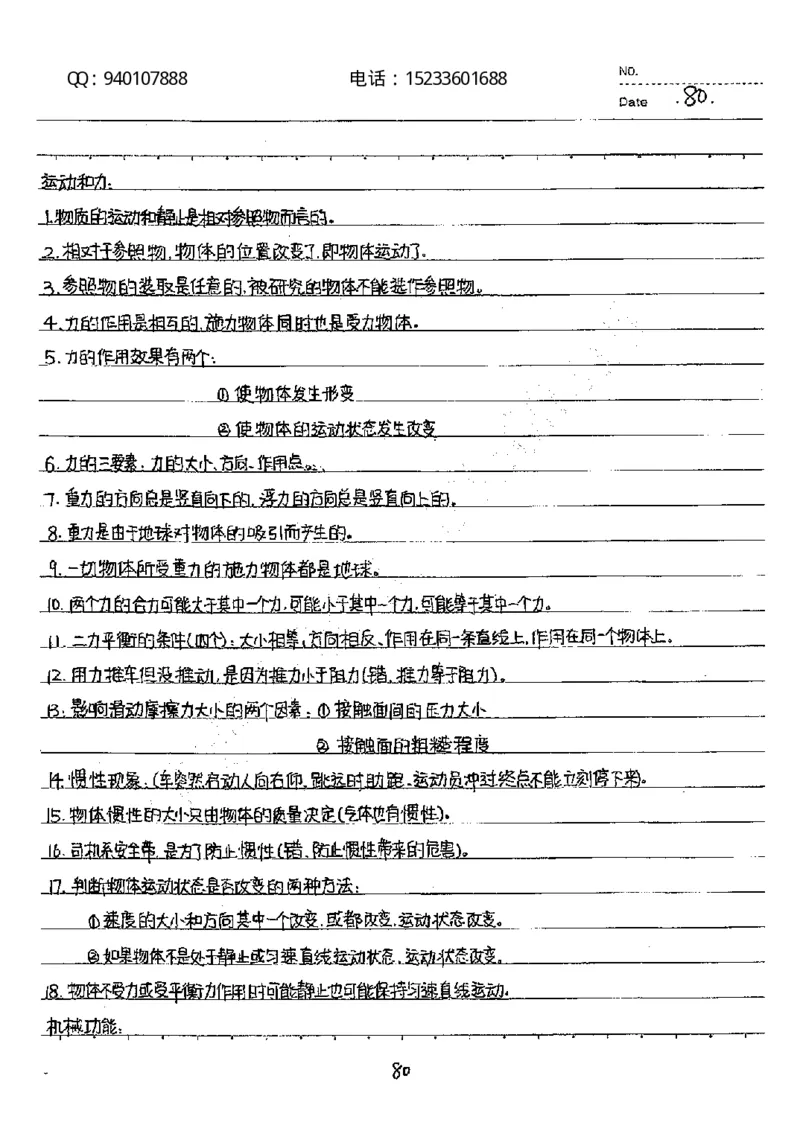 QQ：940107888 电话：15233601688 NO.
Date .80.
运动和力:
1.物质的运动和静止是相对参照物而言的。
2.相对于参照物,物体的位置改变了,即物体运动了。
3.参照物的选取是任意的,被研究的物体不能选作参照物。
4.力的作用是相互的,施力物体同时也是受力物体。
5.力的作用效果有两个:
①使物体发生形变
②使物体的运动状态发生改变
6.力的三要素:力的大小、方向、作用点。
7.重力的方向总是竖直向下的,浮力的方向总是竖直向上的。
8.重力是由于地球对物体的吸引而产生的。
9.一切物体所受重力的施力物体都是地球。
10.两个力的合力可能大于其中一个力,可能小于其中一个力,可能等于其中一个力。
11.二力平衡的条件(四个):大小相等、方向相反、作用在同一条直线上,作用在同一个物体上。
12.用力推车但没推动,是因为推力小于阻力(错,推力等于阻力)。
13.影响滑动摩擦力大小的两个因素:①接触面间的压力大小
②接触面的粗糙程度
14.惯性现象:(车突然启动人向右仰,跳远时助跑、运动员冲过终点不能立刻停下来)。
15.物体惯性的大小只由物体的质量决定(气体也有惯性)。
16.司机系安全带,是为了防止惯性(错、防止惯性带来的危害)。
17.判断物体运动状态是否改变的两种方法:
①速度的大小和方向其中一个改变,或都改变,运动状态改变。
②如果物体不是处于静止或匀速直线运动状态,运动状态改变。
18.物体不受力或受平衡力作用时可能静止也可能保持匀速直线运动.
机械功能:
80